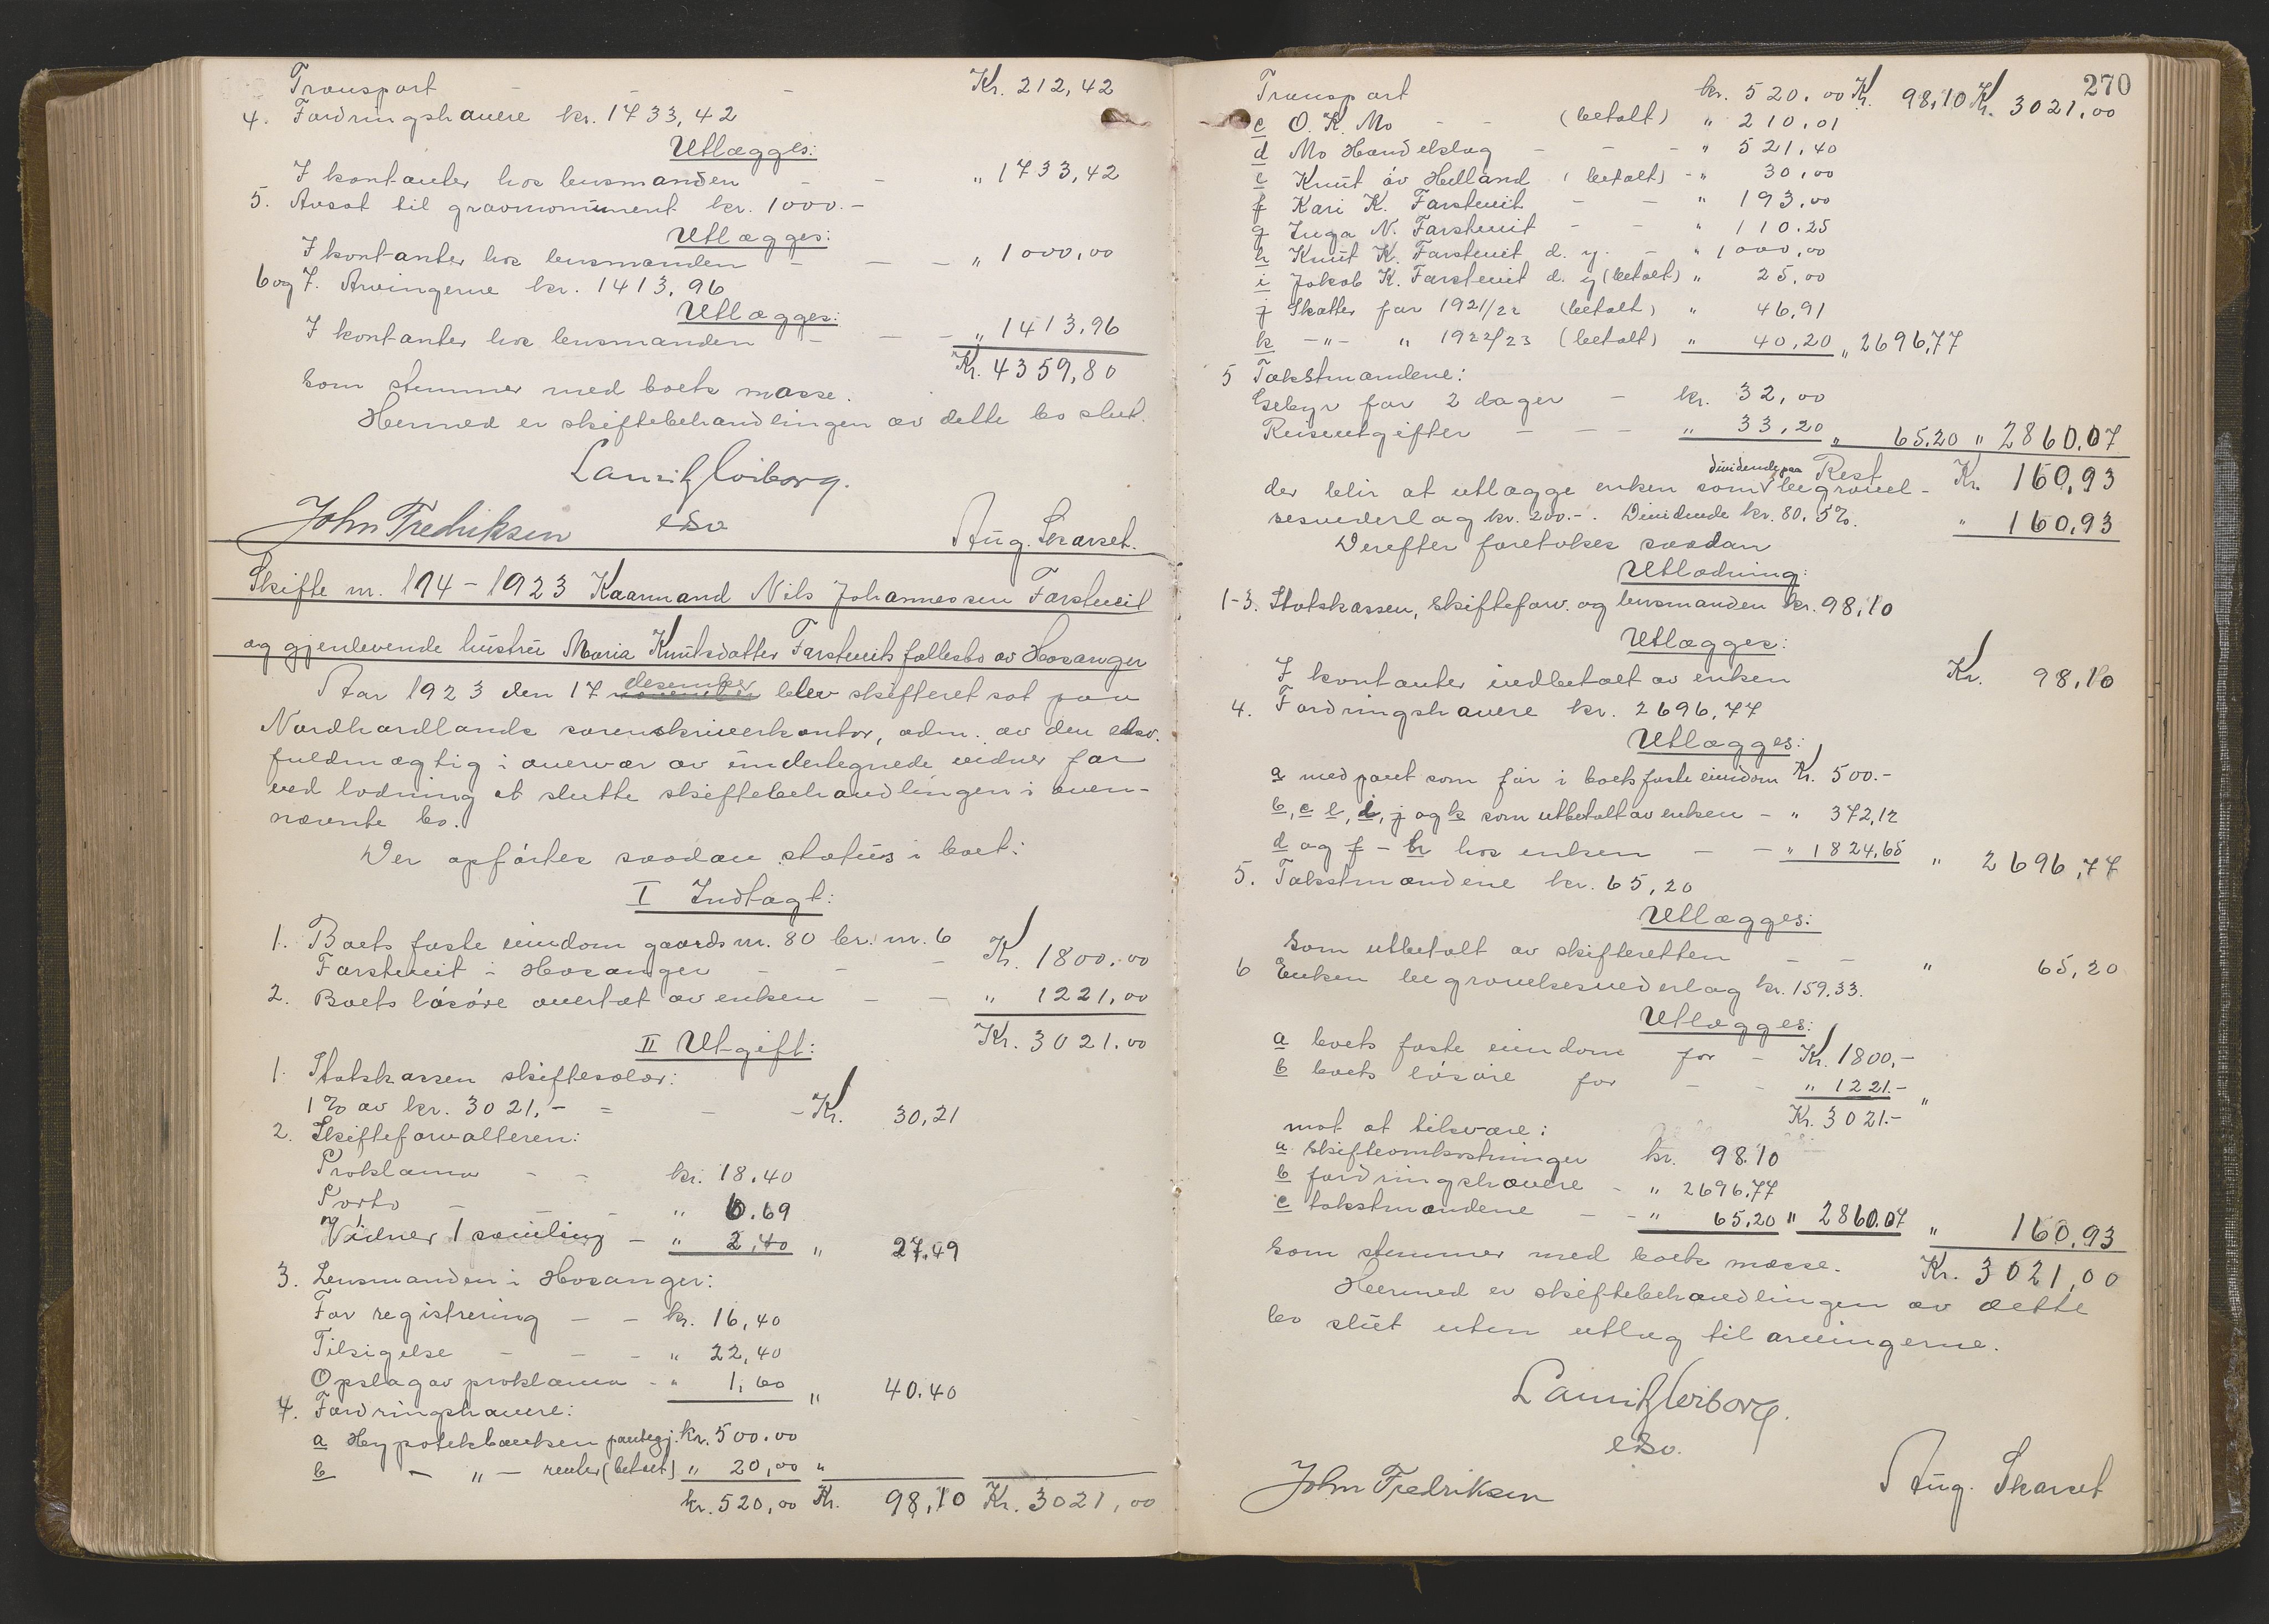 Transport - - Kr. 212,42
4. Fordringshavere kr. 1733,42
Utlægges:
I kontanter hos lensmanden - - " 1733,42
5. Avsat til gravmonument kr. 1000.-
Utlægges:
I kontanter hos lensmanden - - - " 1000,00
6 og 7. Arvingerne kr. 1413,96
Utlægges:
I kontanter hos lensmanden - - - " 1413,96
Kr. 4359,80
som stemmer med boets masse.
Hermed er skiftebehandlingen av dette bo slut.
John Fredriksen Aug. Skarset.
Skifte nr. 174 - 1923 Kaarmand Nils Johannessen Farstveit
og gjenlevende hustru Maria Knutsdatter Farstveits fællesbo av Hosanger
Aar 1923 den 17 desember blev skifteret sat paa
Nordhordlands sorenskriverkontor, adm. av den edsv.
fuldmægtig i overvær av undertegnede vidner for
ved lodning at slutte skiftebehandlingen i oven-
nævnte bo.
Der opførtes saadan status i boet:
I Indtægt:
1. Boets faste eiendom gaards nr. 80 br. nr. 6
Farstveit i Hosanger - - - Kr. 1800,00
2. Boets løsøre overtat av enken - - " 1221,00
Kr. 3021.00
II Utgift:
1. Statskassen skiftesalær:
1% av kr. 3021,- = - - Kr. 30,21
2. Skifteforvalteren:
Proklama - - kr. 18.40
Porto - - - " 6.69
Vidner 1 samling - " 2,40 " 27.49
3. Lensmanden i Hosanger:
For registrering - - kr. 16,40
Tilsigelse - - - " 22,40
Opslag av proklama - " 1,60 " 40.40
4. Fordringshavere:
a Hypotekbanken pantegj. kr. 500.00
b - " - renter (betalt) " 20,00 "
kr. 520,00 Kr. 98,10 Kr. 3021,00
270
Transport kr. 520.00 Kr. 98,10 Kr. 3021,00
c O. K. Mo - - (betalt) " 210,01
d Mo Handelslag - - - " 521,40
e Knut av Helland (betalt) - " 30,00
f Kari K. Farstveit - - " 193,00
g Inga N. Farstveit - - " 110.25
h Knut K. Farstveit d. y. - " 1000,00
i Jakob K. Farstveit d. y (betalt) " 25,00
j Skatter for 1921/22 (betalt) " 46,91
k -"- " 1922/23 (betalt) " 40,20 " 2696,77
5 Takstmændene:
Gebyr for 2 dager - kr. 32,00
Reiseutgifter - - - " 33,20 " 65.20 " 2860.07
Rest Kr. 160,93
der blir at utlægge enken som dividende paa begravel-
sesvederlag kr. 200.-. Dividende kr. 80,5%. " 160,93
Derefter foretokes saadan
Utlodning:
1-3. Statskassen, skifteforv. og lensmanden kr. 98,10
Utlægges:
I kontanter indbetalt av enken Kr. 98,10
4. Fordringshavere kr. 2696,77
Utlægges:
a med pant som før i boets faste eiendom Kr. 500.-
b, c, e, i, j og k som utbetalt av enken - " 372,12
d og f - h hos enken - - " 1824,65 " 2696,77
5. Takstmændene kr. 65,20
Utlægges:
Som utbetalt av skifteretten - - " 65,20
6 Enken begravelsesvederlag kr. 159.33.
Utlægges:
a boets faste eiendom for - Kr. 1800,-
b boets løsøre for - - " 1221.- "
Kr. 3021.-
mot at tilsvare:
a skifteomkostninger kr. 98.10
b fordringshavere - " 2696,77
c takstmændene - - " 65,20 " 2860.07 " 160,93
som stemmer med boets masse. Kr. 3021,00
Hermed er skiftebehandlingen av dette
bo slut uten utlæg til arvingerne.
John Fredriksen Aug. Skarset